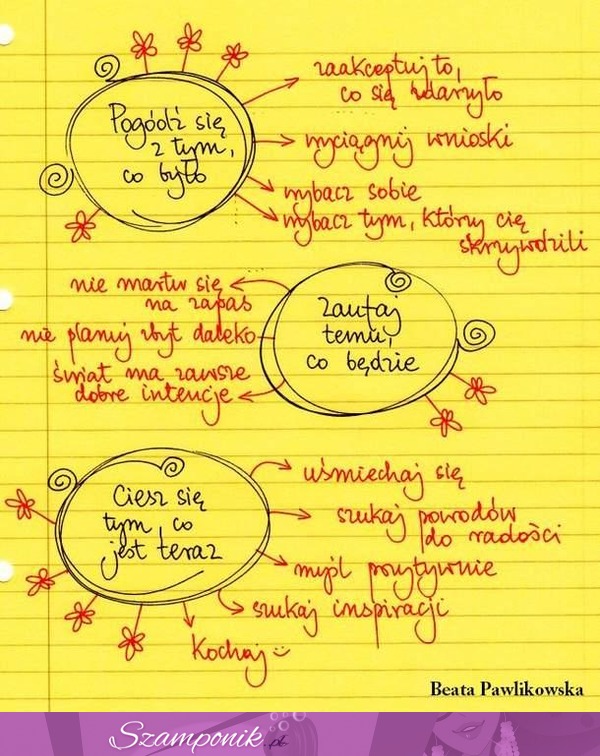 Pogódź się
z tym,
co było
zaakceptuj to,
co się zdarzyło
wyciągnij wnioski
wybacz sobie
wybacz tym, którzy cię
skrzywdzili
Zaufaj
temu,
co będzie
nie martw się
na zapas
nie planuj zbyt daleko
świat ma zawsze
dobre intencje
Ciesz się
tym, co
jest teraz
uśmiechaj się
szukaj powodów
do radości
myśl pozytywnie
szukaj inspiracji
Kochaj
Beata Pawlikowska
Szamponik.pl